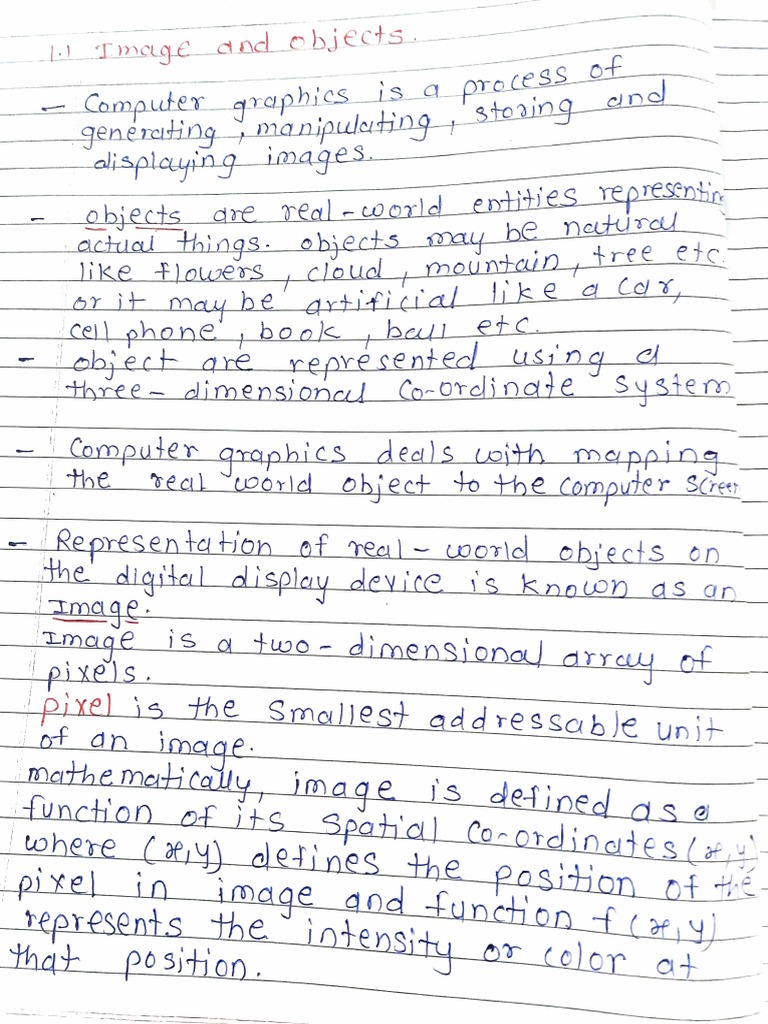 1.1 Image and objects.
- Computer graphics is a process of
generating, manipulating, storing and
displaying images.
- objects are real-world entities representin
actual things. objects may be natural
like flowers, cloud, mountain, tree etc.
or it may be artificial like a car,
cell phone, book, ball etc.
- object are represented using a
three-dimensional co-ordinate system
- Computer graphics deals with mapping
the real world object to the computer screen
- Representation of real-world objects on
the digital display device is known as an
Image.
Image is a two-dimensional array of
pixels.
pixel is the smallest addressable unit
of an image.
mathematically, image is defined as a
function of its spatial co-ordinates (x,y)
where (x,y) defines the position of the
pixel in image and function f(x,y)
represents the intensity or color at
that position.